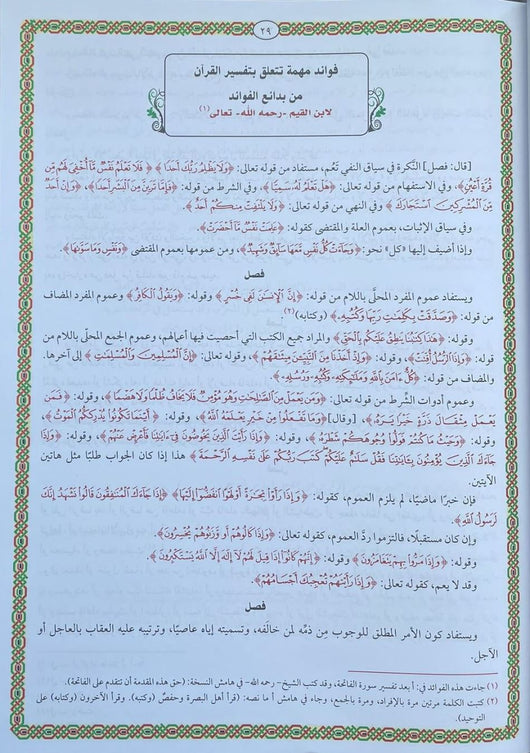 ٢٩
فوائد مهمة تتعلق بتفسير القرآن
من بدائع الفوائد
لابن القيم -رحمه الله- تعالى (١)
[قال: فصل] النكرة في سياق النفي تَعُم، مستفاد من قوله تعالى: ﴿وَلَا يَظْلِمُ رَبُّكَ أَحَدًا﴾ ﴿فَلَا تَعْلَمُ نَفْسٌ مَّا أُخْفِيَ لَهُم مِّن
قُرَّةِ أَعْيُنٍ﴾، وفي الاستفهام من قوله تعالى: ﴿هَلْ تَعْلَمُ لَهُ سَمِيًّا﴾، وفي الشرط من قوله: ﴿فَإِمَّا تَرَيِنَّ مِنَ الْبَشَرِ أَحَدًا﴾، ﴿وَإِنْ أَحَدٌ
مِّنَ الْمُشْرِكِينَ اسْتَجَارَكَ﴾ وفي النهي من قوله تعالى: ﴿وَلَا يَلْتَفِتْ مِنكُمْ أَحَدٌ﴾.
وفي سياق الإثبات، بعموم العلة والمقتضى كقوله: ﴿عَلِمَتْ نَفْسٌ مَّا أَحْضَرَتْ﴾.
وإذا أضيف إليها «كل» نحو: ﴿وَجَاءَتْ كُلُّ نَفْسٍ مَّعَهَا سَائِقٌ وَشَهِيدٌ﴾، ومن عمومها بعموم المقتضى ﴿وَنَفْسٍ وَمَا سَوَّاهَا﴾.
فصل
ويستفاد عموم المفرد المحلَّى باللام من قوله: ﴿إِنَّ الْإِنسَانَ لَفِي خُسْرٍ﴾ وقوله: ﴿وَيَقُولُ الْكَافِرُ﴾ وعموم المفرد المضاف
من قوله: ﴿وَصَدَّقَتْ بِكَلِمَاتِ رَبِّهَا وَكُتُبِهِ﴾. (وكتابه)(٢)
وقوله: ﴿هَذَا كِتَابُنَا يَنطِقُ عَلَيْكُم بِالْحَقِّ﴾ والمراد جميع الكتب التي أحصيت فيها أعمالهم، وعموم الجمع المحلَّى باللام من
قوله: ﴿وَإِذَا الرُّسُلُ أُقِّتَتْ﴾، وقوله: ﴿وَإِذْ أَخَذْنَا مِنَ النَّبِيِّينَ مِيثَاقَهُمْ﴾، وقوله تعالى: ﴿إِنَّ الْمُسْلِمِينَ وَالْمُسْلِمَاتِ﴾ إلى آخرها.
والمضاف من قوله: ﴿كُلٌّ آمَنَ بِاللَّهِ وَمَلَائِكَتِهِ وَكُتُبِهِ وَرُسُلِهِ﴾.
وعموم أدوات الشرط من قوله تعالى: ﴿وَمَن يَعْمَلْ مِنَ الصَّالِحَاتِ وَهُوَ مُؤْمِنٌ فَلَا يَخَافُ ظُلْمًا وَلَا هَضْمًا﴾، وقوله: ﴿فَمَن
يَعْمَلْ مِثْقَالَ ذَرَّةٍ خَيْرًا يَرَهُ﴾، [وقال] ﴿وَمَا تَفْعَلُوا مِنْ خَيْرٍ يَعْلَمْهُ اللَّهُ﴾، وقوله: ﴿أَيْنَمَا تَكُونُوا يُدْرِككُّمُ الْمَوْتُ﴾،
وقوله: ﴿وَحَيْثُ مَا كُنتُمْ فَوَلُّوا وُجُوهَكُمْ شَطْرَهُ﴾، وقوله: ﴿وَإِذَا رَأَيْتَ الَّذِينَ يَخُوضُونَ فِي آيَاتِنَا فَأَعْرِضْ عَنْهُمْ﴾، وقوله: ﴿وَإِذَا
جَاءَكَ الَّذِينَ يُؤْمِنُونَ بِآيَاتِنَا فَقُلْ سَلَامٌ عَلَيْكُمْ كَتَبَ رَبُّكُمْ عَلَى نَفْسِهِ الرَّحْمَةَ﴾ هذا إذا كان الجواب طلبًا مثل هاتين
الآيتين.
فإن خبرًا ماضيًا، لم يلزم العموم، كقوله: ﴿وَإِذَا رَأَوْا تِجَارَةً أَوْ لَهْوًا انفَضُّوا إِلَيْهَا﴾ ﴿إِذَا جَاءَكَ الْمُنَافِقُونَ قَالُوا نَشْهَدُ إِنَّكَ
لَرَسُولُ اللَّهِ﴾.
وإن كان مستقبلًا، فالتزموا ردَّ العموم، كقوله تعالى: ﴿وَإِذَا كَالُوهُمْ أَو وَّزَنُوهُمْ يُخْسِرُونَ﴾.
وقوله: ﴿وَإِذَا مَرُّوا بِهِمْ يَتَغَامَزُونَ﴾ وقوله: ﴿إِنَّهُمْ كَانُوا إِذَا قِيلَ لَهُمْ لَا إِلَهَ إِلَّا اللَّهُ يَسْتَكْبِرُونَ﴾.
وقد لا يعم، كقوله تعالى: ﴿وَإِذَا رَأَيْتَهُمْ تُعْجِبُكَ أَجْسَامُهُمْ﴾.
فصل
ويستفاد كون الأمر المطلق للوجوب مِن ذمِّه لمن خالفَه، وتسميته إياه عاصيًا، وترتيبه عليه العقاب بالعاجل أو
الآجل.
(١) جاءت هذه الفوائد في: أ بعد تفسير سورة الفاتحة، وقد كتب الشيخ- رحمه الله- في هامش النسخة: (حق هذه المقدمة أن تتقدم على الفاتحة).
(٢) كتبت الكلمة مرتين مرة بالإفراد، ومرة بالجمع، وجاء في هامش أ ما نصه: (قرأ أهل البصرة وحفصٌ (وكتبه). وقرأ الآخرون (وكتابه) على
التوحيد).